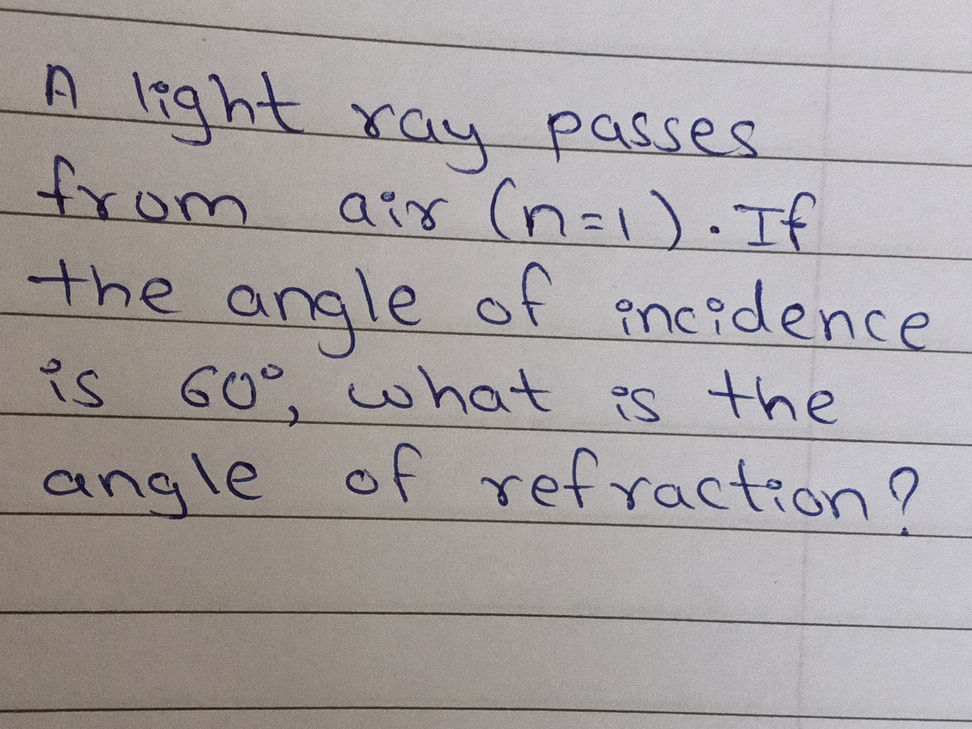 A light ray passes
from air (n=1). If
the angle of incidence
is 60°, what is the
angle of refraction?